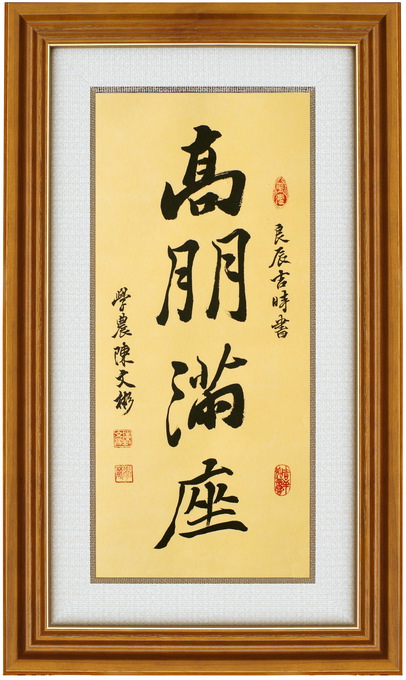 良辰吉時書
高朋滿座
學農陳文彬